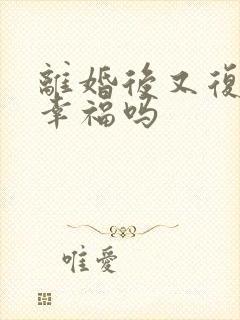 離婚後又復
幸福吗
唯愛